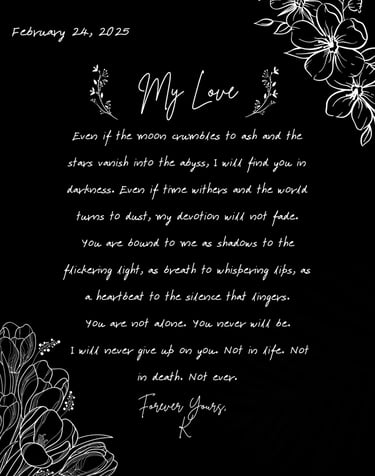 February 24, 2025
My Love
Even if the moon crumbles to ash and the
stars vanish into the abyss, I will find you in
darkness. Even if time withers and the world
turns to dust, my devotion will not fade.
You are bound to me as shadows to the
flickering light, as breath to whispering lips, as
a heartbeat to the silence that lingers.
You are not alone. You never will be.
I will never give up on you. Not in life. Not
in death. Not ever.
Forever Yours,
K